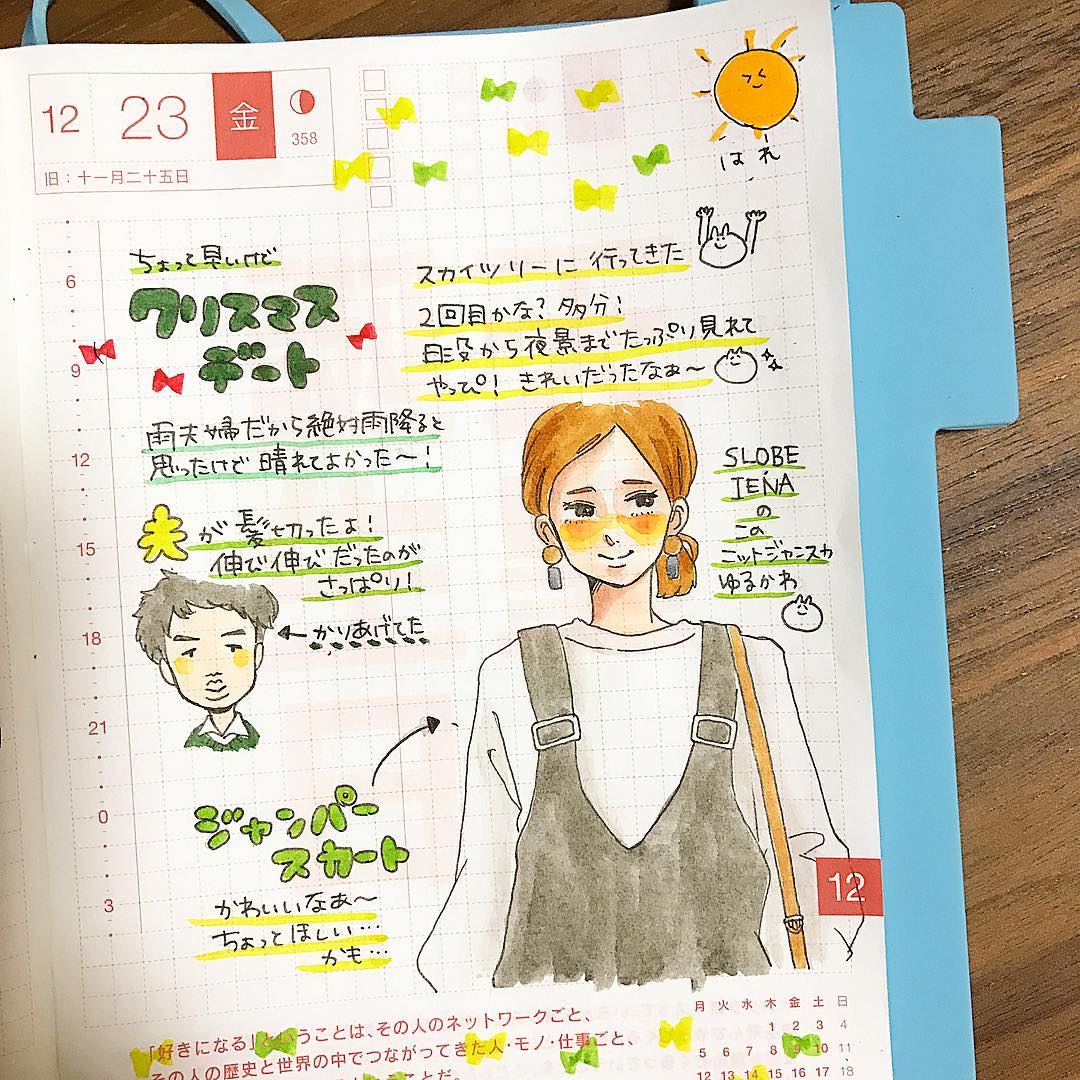 12 23 金
358
旧：十一月二十五日
はれ
ちょっと早いけど
クリスマス
デート
雨夫婦だから絶対雨降ると
思ったけど晴れてよかった〜！
夫が髪切ったよ！
伸び伸びだったのが
さっぱり！
←かりあげてた
スカイツリーに行ってきた
2回目かな？多分！
日没から夜景までたっぷり見れて
やっぴ！きれいだったなぁ〜
SLOBE
IENA
の
この
ニットジャンスカ
ゆるかわ
ジャンパー
スカート
かわいいなぁ〜
ちょっとほしい…
かも…
6
9
12
15
18
21
0
3
12
「好きになる」ということは、その人のネットワークごと、
その人の歴史と世界の中でつながってきた人・モノ・仕事ごと、
月 火 水 木 金 土 日
1 2 3 4
5 6 7 8 9 10 11
12 13 14 15 16 17 18